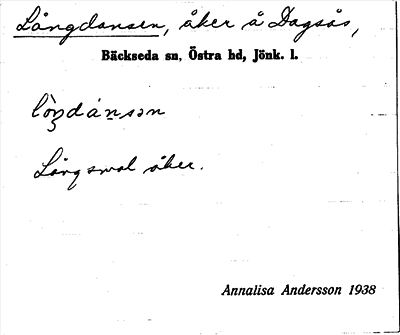 Långdansen, åker å Dagsås,
Bäckseda sn, Östra hd, Jönk. l.
lòŋdánsən
Lång smal åker.
Annalisa Andersson 1938